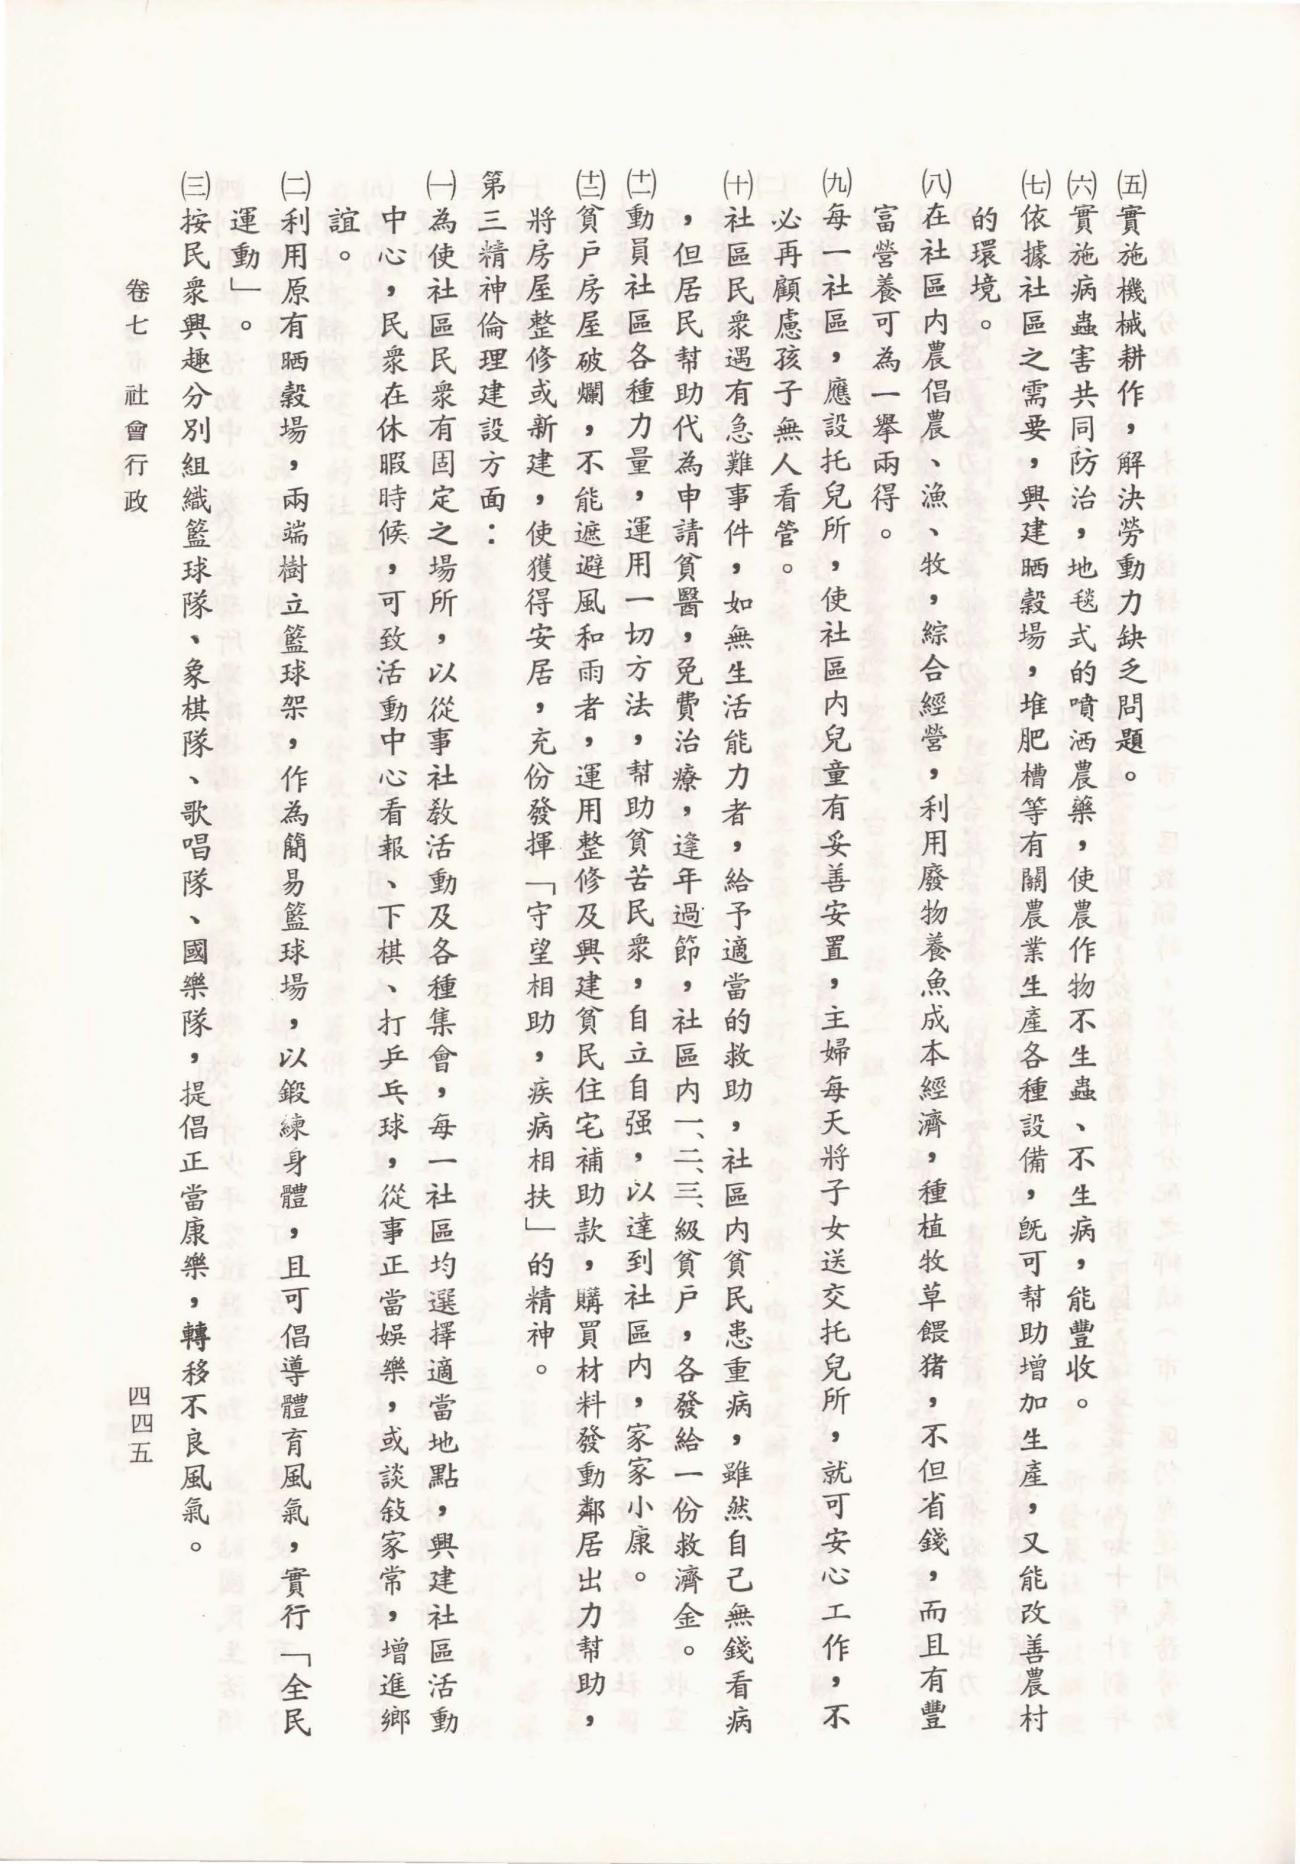 ㈤實施機械耕作，解決勞動力缺乏問題。
㈥實施病蟲害共同防治，地毯式的噴洒農藥，使農作物不生蟲、不生病，能豐收。
㈦依據社區之需要，興建晒穀場，堆肥槽等有關農業生產各種設備，旣可幫助增加生產，又能改善農村
的環境。
㈧在社區內農倡農、漁、牧，綜合經營，利用廢物養魚成本經濟，種植牧草餵猪，不但省錢，而且有豐
富營養可為一擧兩得。
㈨每一社區，應設托兒所，使社區內兒童有妥善安置，主婦每天將子女送交托兒所，就可安心工作，不
必再顧慮孩子無人看管。
㈩社區民衆遇有急難事件，如無生活能力者，給予適當的救助，社區內貧民患重病，雖然自己無錢看病
，但居民幫助代為申請貧醫，免費治療，逢年過節，社區內一、二、三、級貧戶，各發給一份救濟金。
(十一)動員社區各種力量，運用一切方法，幫助貧苦民衆，自立自强，以達到社區內，家家小康。
(十二)貧戶房屋破爛，不能遮避風和雨者，運用整修及興建貧民住宅補助款，購買材料發動鄰居出力幫助，
將房屋整修或新建，使獲得安居，充份發揮「守望相助，疾病相扶」的精神。
第三精神倫理建設方面：
㈠為使社區民衆有固定之場所，以從事社教活動及各種集會，每一社區均選擇適當地點，興建社區活動
中心，民衆在休暇時候，可致活動中心看報、下棋、打乒乓球，從事正當娛樂，或談敍家常，增進鄉
誼。
㈡利用原有晒穀場，兩端樹立籃球架，作為簡易籃球場，以鍛練身體，且可倡導體育風氣，實行「全民
運動」。
㈢按民衆興趣分別組織籃球隊、象棋隊、歌唱隊、國樂隊，提倡正當康樂，轉移不良風氣。
卷七　社會行政
四四五